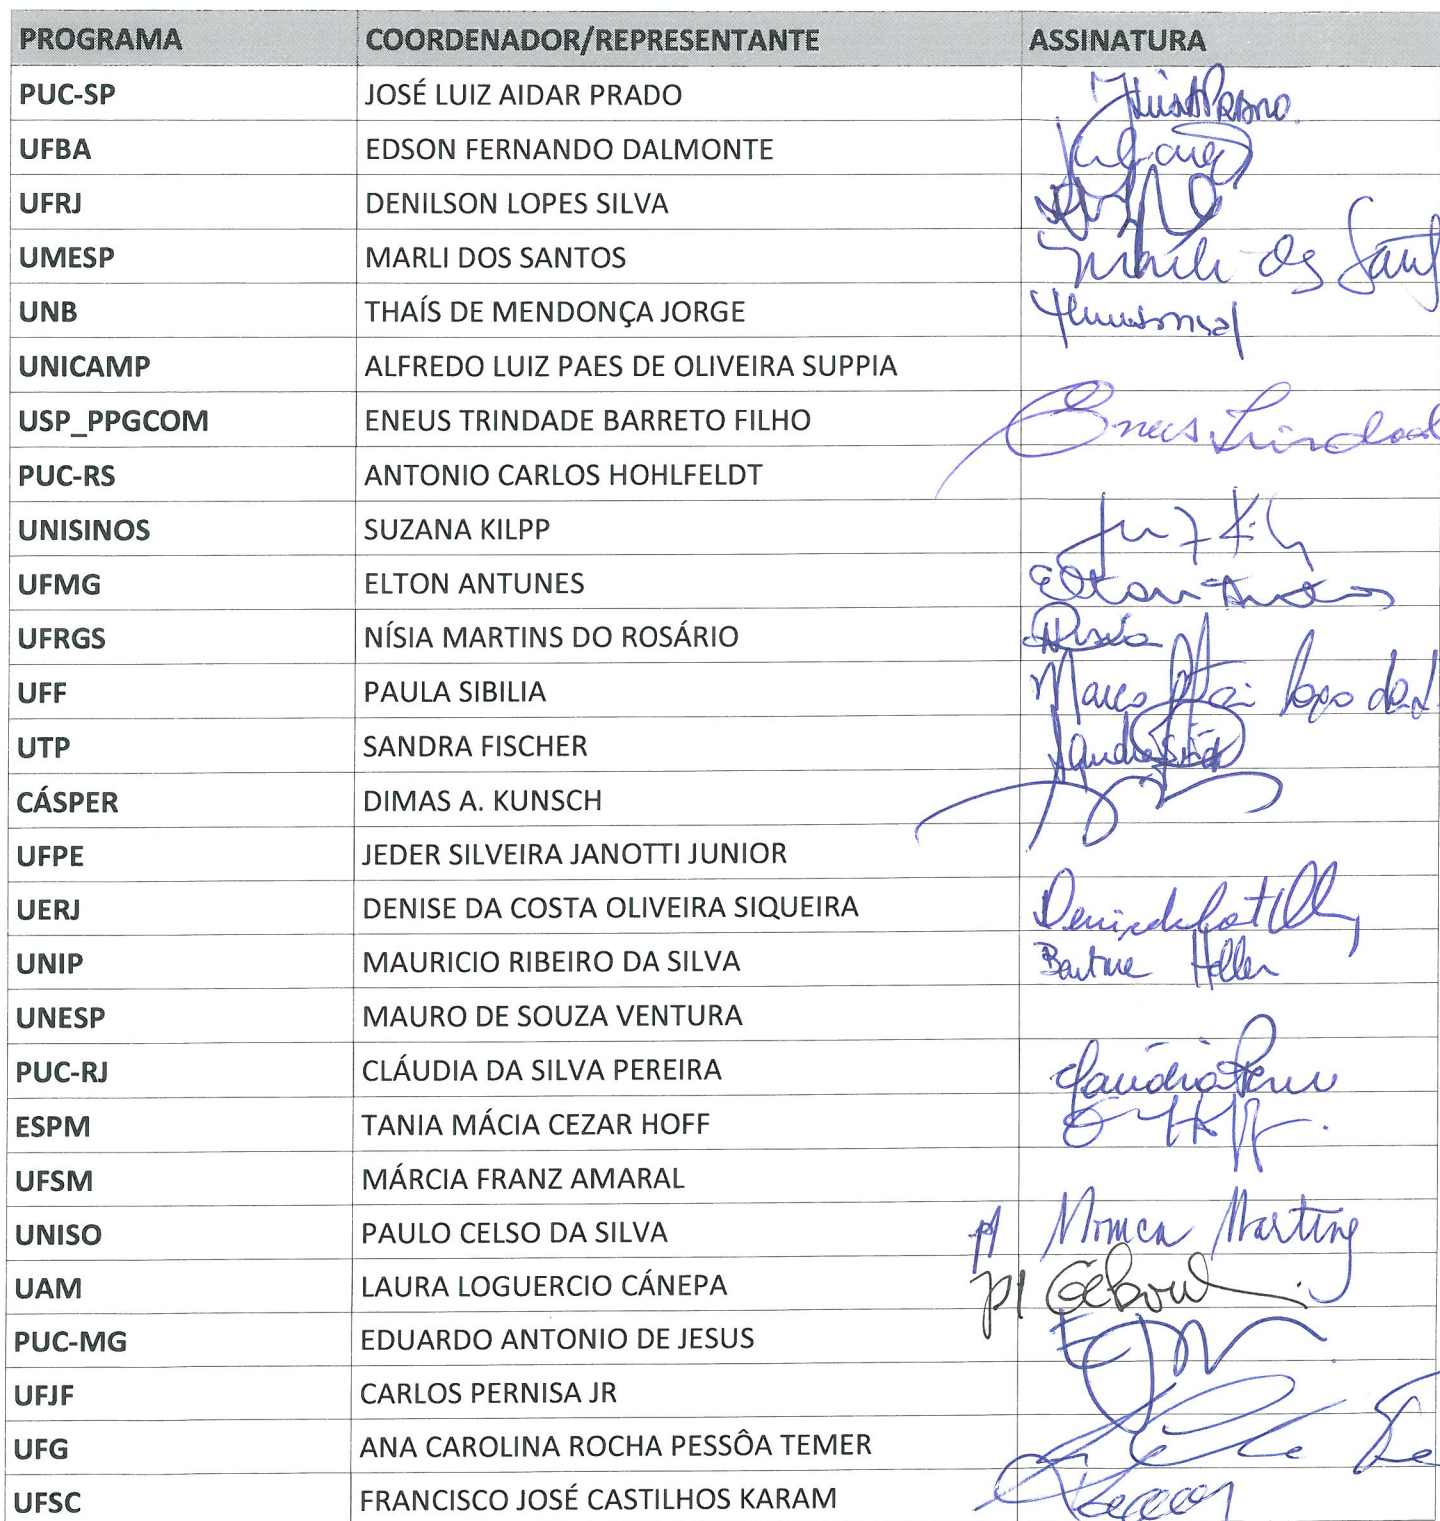 PROGRAMA COORDENADOR/REPRESENTANTE ASSINATURA
PUC-SP JOSÉ LUIZ AIDAR PRADO
UFBA EDSON FERNANDO DALMONTE
UFRJ DENILSON LOPES SILVA
UMESP MARLI DOS SANTOS Marli dos
UNB THAÍS DE MENDONÇA JORGE
UNICAMP ALFREDO LUIZ PAES DE OLIVEIRA SUPPIA
USP_PPGCOM ENEUS TRINDADE BARRETO FILHO Eneus
PUC-RS ANTONIO CARLOS HOHLFELDT
UNISINOS SUZANA KILPP
UFMG ELTON ANTUNES Elton Antunes
UFRGS NÍSIA MARTINS DO ROSÁRIO
UFF PAULA SIBILIA Marco
UTP SANDRA FISCHER
CÁSPER DIMAS A. KUNSCH
UFPE JEDER SILVEIRA JANOTTI JUNIOR
UERJ DENISE DA COSTA OLIVEIRA SIQUEIRA
UNIP MAURICIO RIBEIRO DA SILVA Heller
UNESP MAURO DE SOUZA VENTURA
PUC-RJ CLÁUDIA DA SILVA PEREIRA
ESPM TANIA MÁCIA CEZAR HOFF
UFSM MÁRCIA FRANZ AMARAL
UNISO PAULO CELSO DA SILVA p/ Monica Martinez
UAM LAURA LOGUERCIO CÁNEPA p/
PUC-MG EDUARDO ANTONIO DE JESUS
UFJF CARLOS PERNISA JR
UFG ANA CAROLINA ROCHA PESSÔA TEMER
UFSC FRANCISCO JOSÉ CASTILHOS KARAM